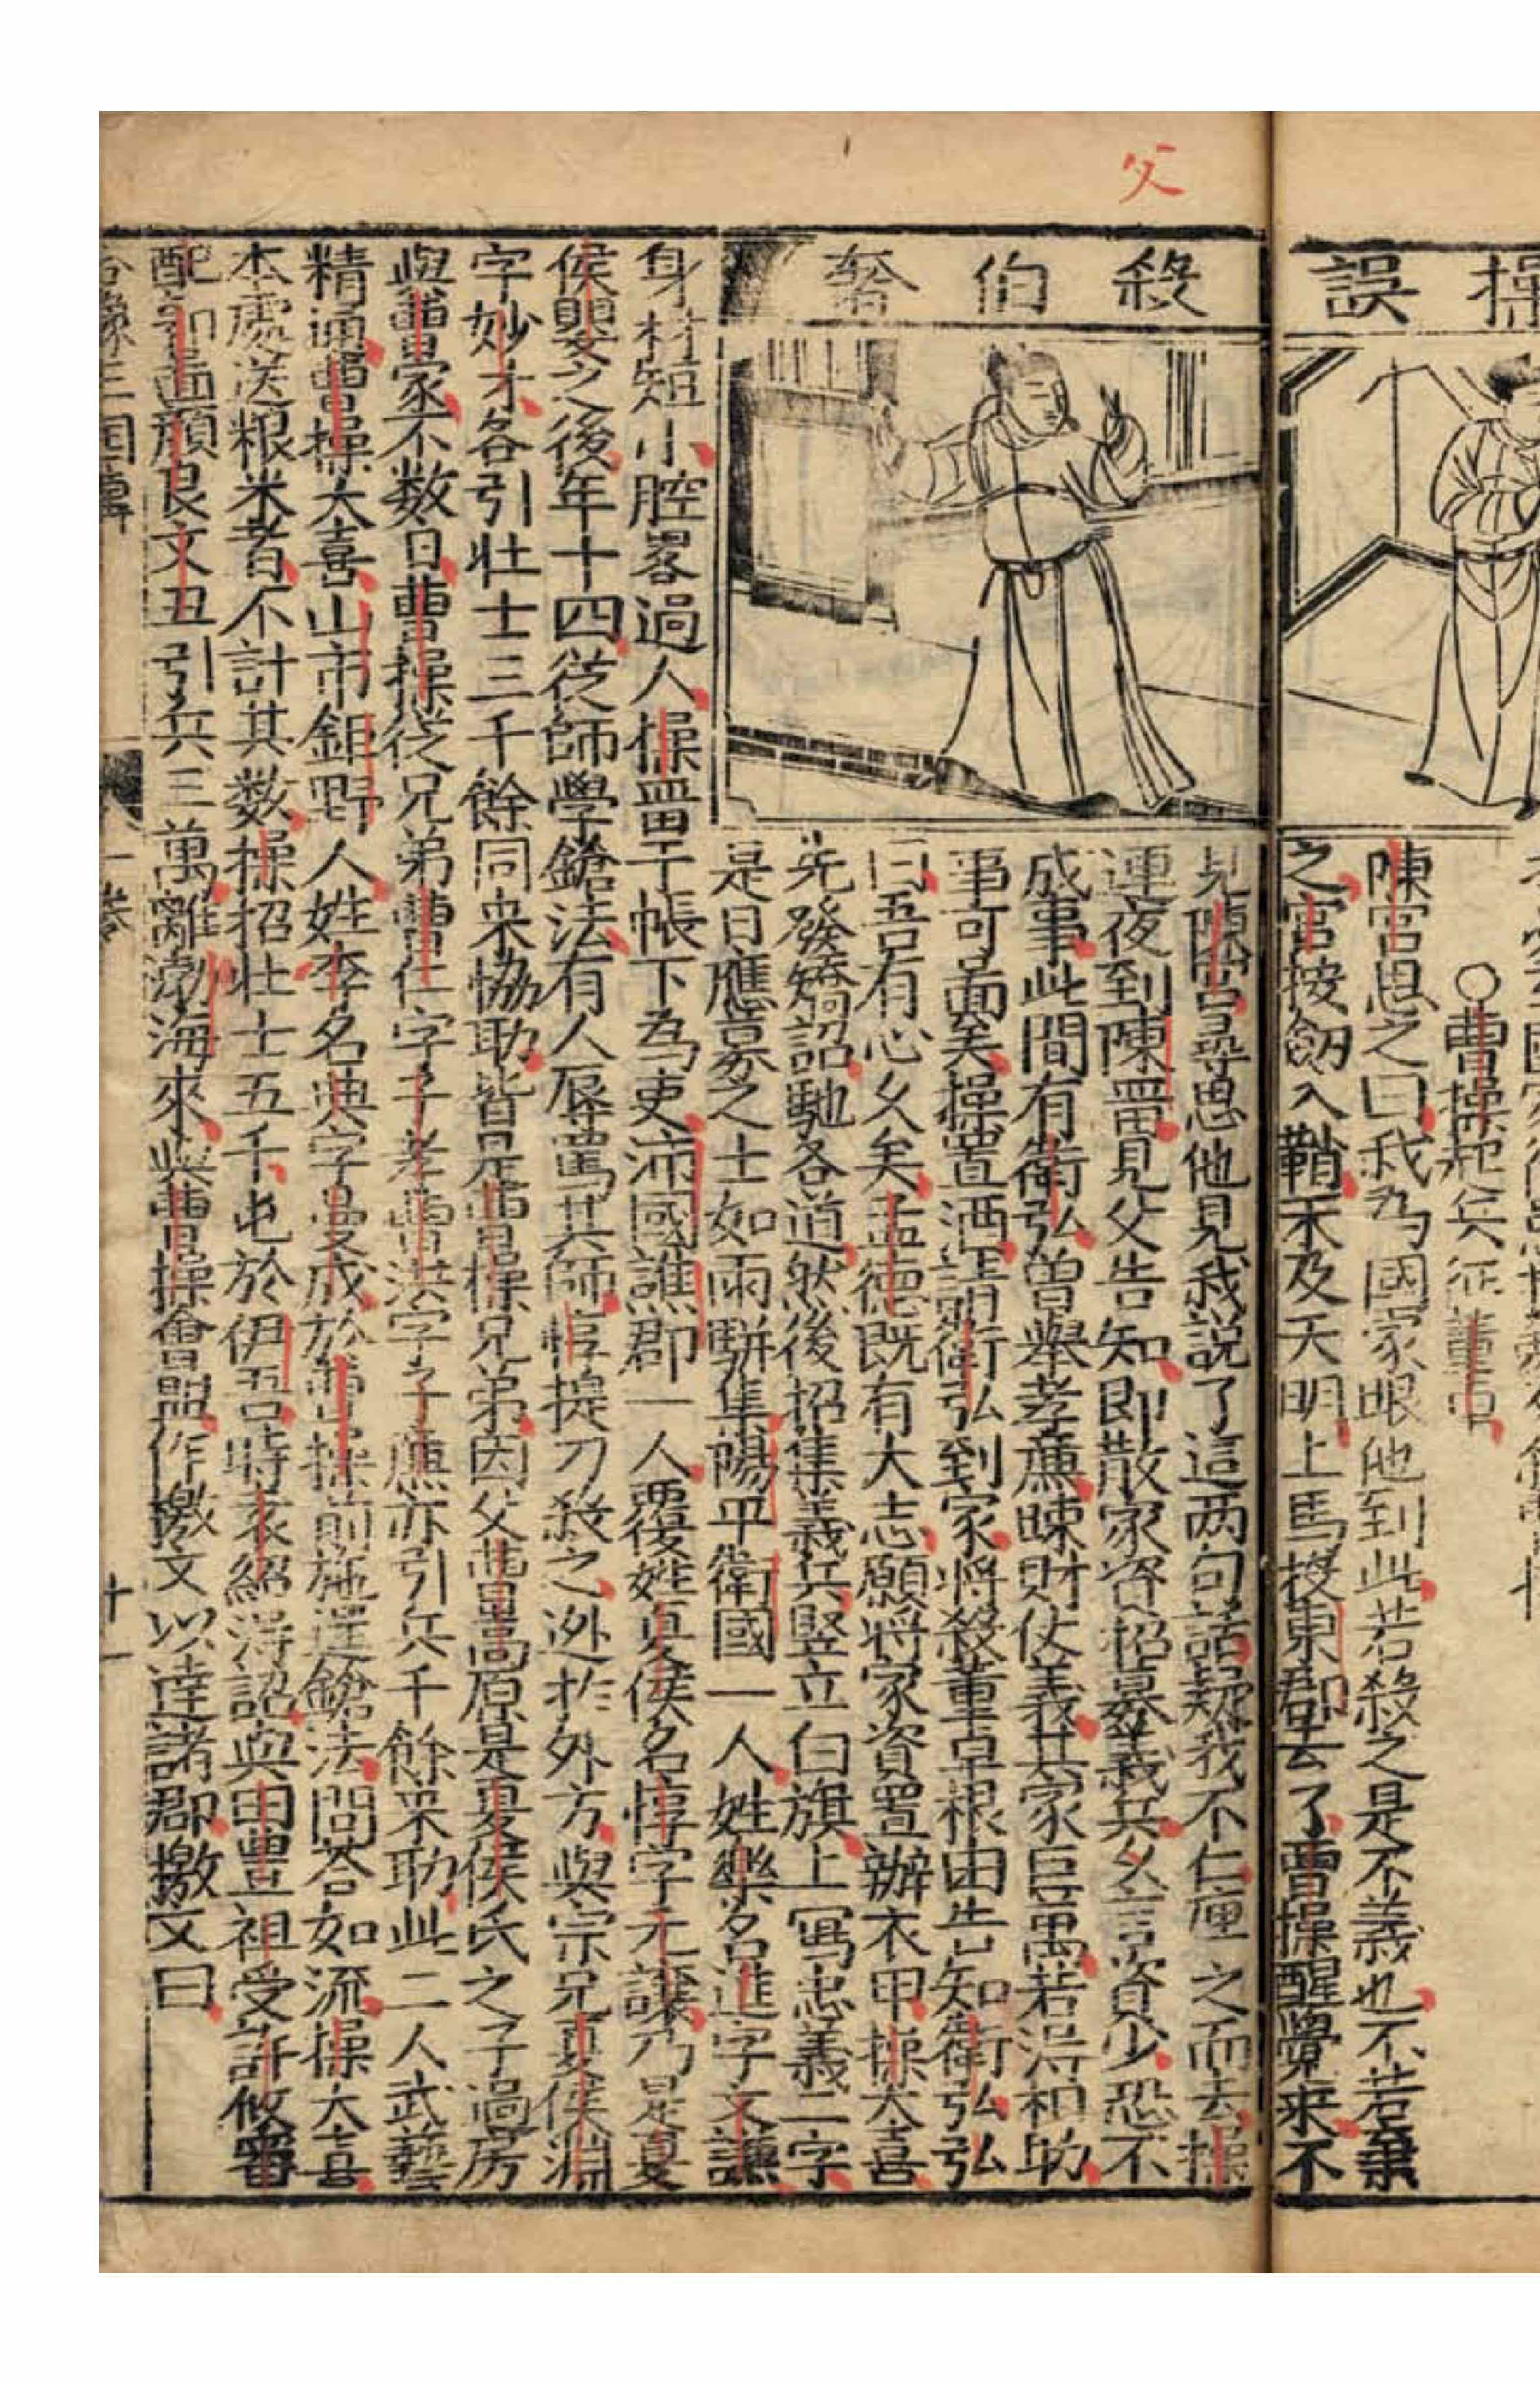 操誤
○曹操起兵征董卓
陳宮思之曰我為國家跟他到此若殺之是不義也不若棄
之宮按劒入鞘不及天明上馬投東郡去了曹操醒覺來不
父
殺伯奢
見陳宮尋思他見我說了這两句話疑我不仁連之而去操
連夜到陳畱見父告知即散家資招募義兵父言資少恐不
成事此間有衛弘曾舉孝廉踈財仗義其家巨萬若得相助
事可啚矣操置酒請衛弘到家將殺董卓根由告知衛弘弘
曰吾有心久矣孟德既有大志願將家資置辦衣甲操大喜
先發矯詔馳各道然後招集義兵竪立白旗上寫忠義二字
是日應募之士如雨駢集陽平衛國一人姓樂名進字文謙
身材短小膽畧過人操畱于帳下為吏沛國譙郡一人覆姓夏侯名惇字元讓乃是夏
侯嬰之後年十四從師學鎗法有人辱罵其師惇提刀殺之迯於外方與宗兄夏侯淵
字妙才各引壮士三千餘同来協助皆是曹操兄弟因父曹嵩原是夏侯氏之子過房
與曹家不数日曹操從兄弟曹仁字子孝曹洪字子廉亦引兵千餘来助此二人武藝
精通曹操大喜山市鉅野人姓李名典字曼成於曹操前施逞鎗法問答如流操大喜
本處送粮米者不計其数操招壮士五千屯於伊吾時袁紹得詔與田豊祖受許攸審
配郭啚顏良文丑引兵三萬離渤海來與曹操會盟作檄文以逹諸郡檄文曰
三國 一卷 十一